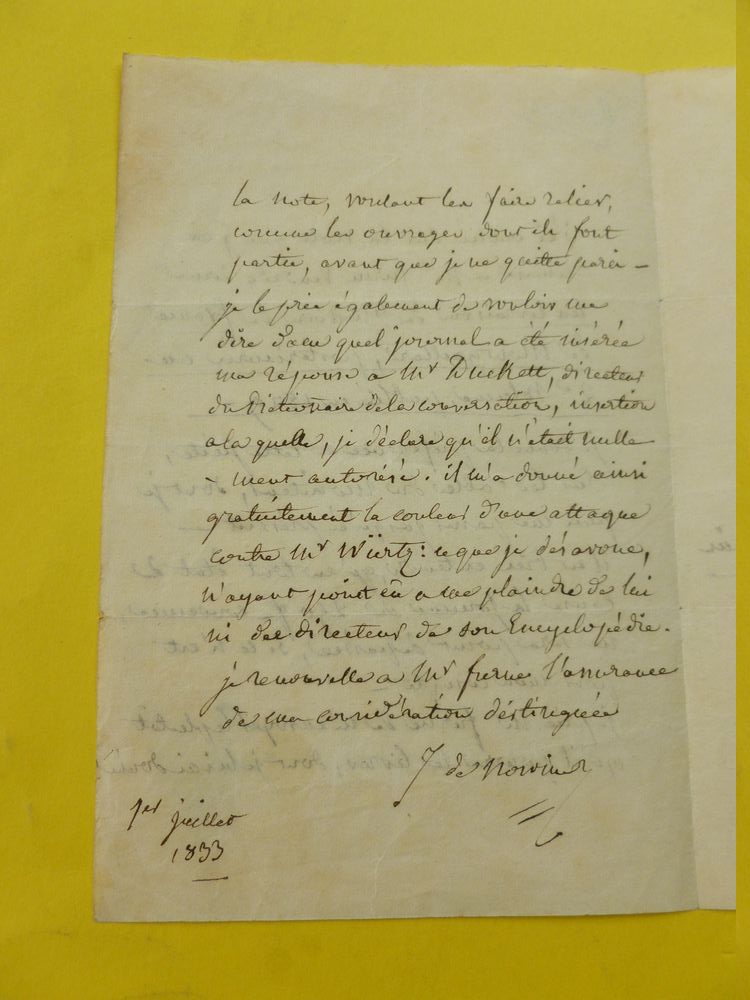 la note, voulant les faire relier,
comme les ouvrages dont ils font
partie, avant que je ne quitte paris –
je le prie également de vouloir me
dire dans quel journal a été insérée
ma réponse a Mr Duckett, directeur
du Dictionaire de la conversation, insertion
a la quelle, je déclare qu'il n'était nulle
– ment autorisé. il m'a donné ainsi
gratuitement la couleur d'une attaque
contre Mr Würtz: ce que je désavoue,
n'ayant point eû a me plaindre de lui
ni des directeurs de son Encyclopédie.
je renouvelle a Mr furne l'assurance
de ma considération distinguée
J de Norvins
1er juillet
1833